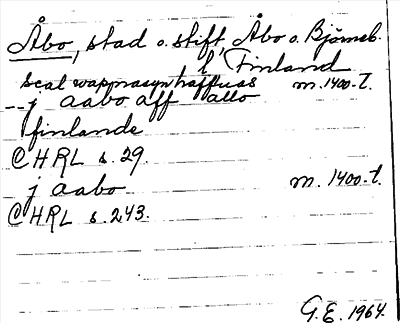 Åbo, stad o. stift, Åbo o. Björneb.
l, Finland
scal wapnasyn haffuas m. 1400-t.
-- j aabo aff allo
finlande
CHRL s. 29.
j aabo m. 1400-t.
CHRL s. 243.
G.E. 1964.